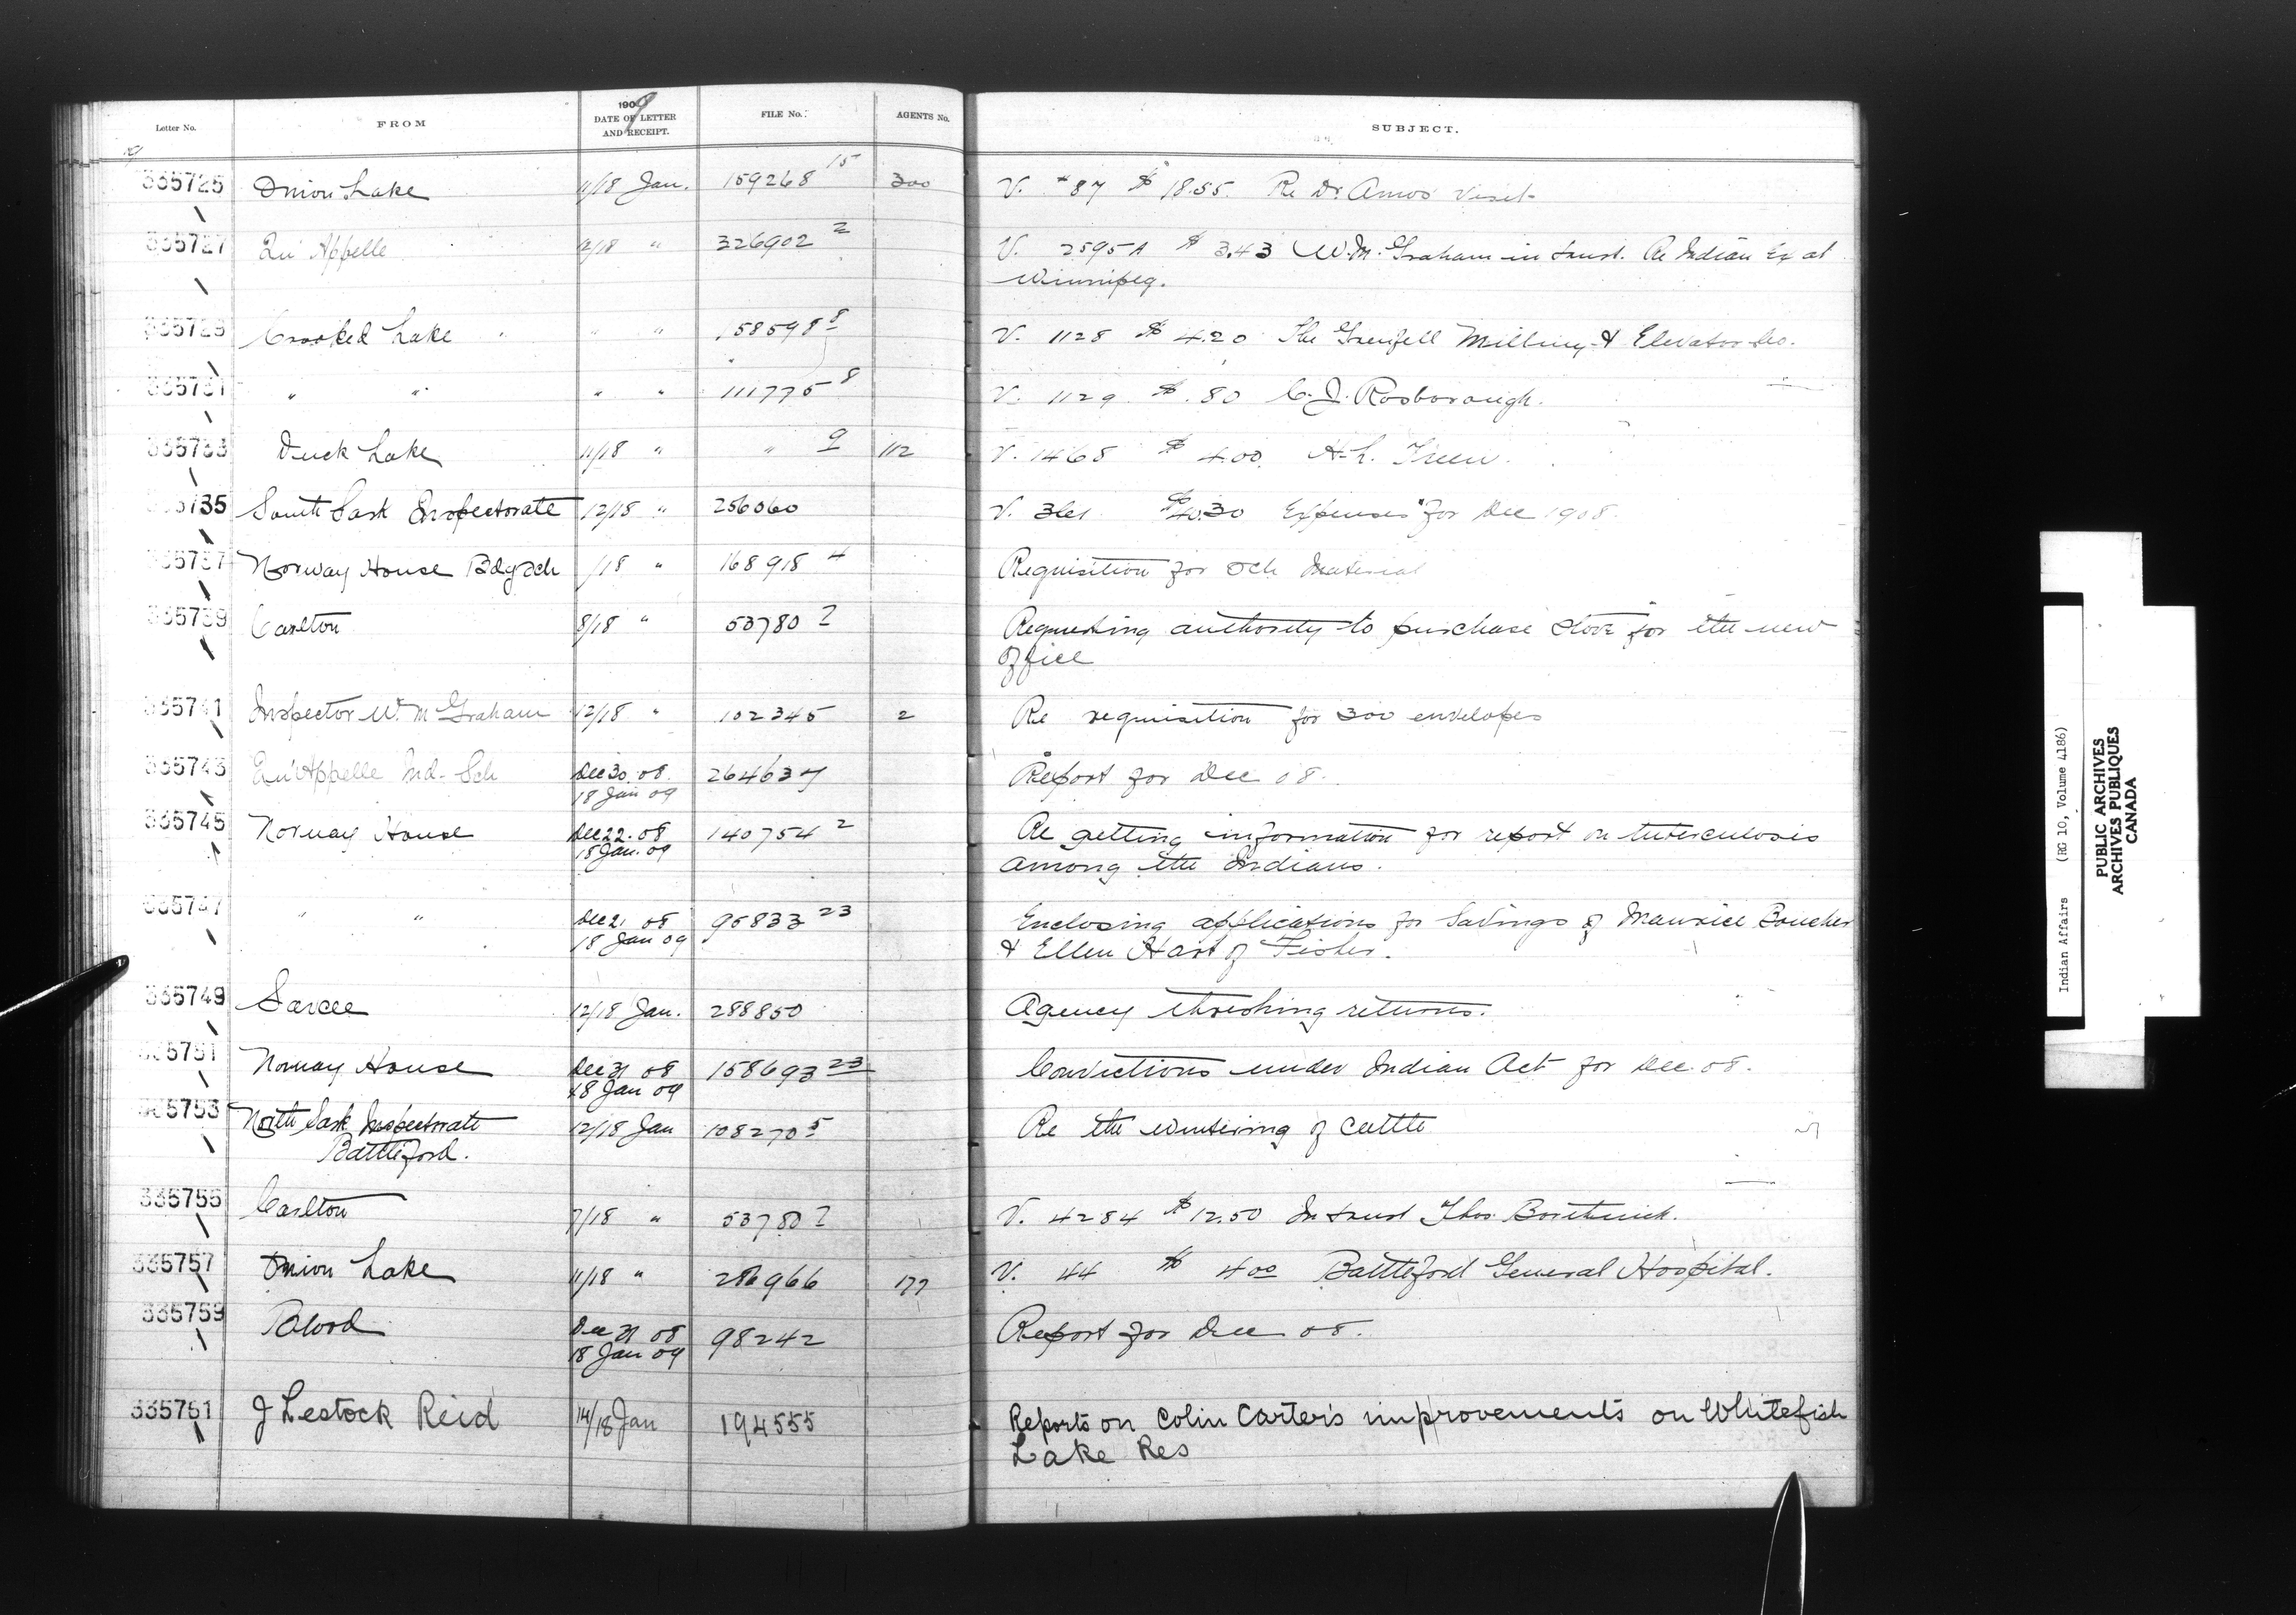 Letter No. FROM 1909 DATE OF LETTER AND RECEIPT. FILE No. AGENTS No. SUBJECT.
335725 Onion Lake 11/18 Jan. 159268 15 300 V. #87 $18.55. Re Dr. Amos' visit
335727 Qu'Appelle 12/18 " 326902 2 V. 2595A $ 3.43 W.M. Graham in trust. Re Indian Ex at
Winnipeg.
335729 Crooked Lake " " 158598 8 V. 1128 $ 4.20 The Grenfell Milling & Elevator Co.
335731 " " " " 111775 8 V. 1129 $ .80 C. J. Rosborough.
335733 Duck Lake 11/18 " " 9 112 V. 1468 $ 4.00. A. L.
335735 South Sask Inspectorate 12/18 " 256060 V. 361 $40.30 Expenses for Dec 1908.
335737 Norway House Bdg Sch /18 " 168918 4 Requisition for Sch Material
335739 Carlton 8/18 " 53780 2 Requesting authority to purchase stove for the new
office
335741 Inspector W. M Graham 12/18 " 102345 2 Re requisition for 300 envelopes
335743 Qu'Appelle Ind. Sch Dec 30. 08. 264637 Report for Dec 08.
18 Jan 09
335745 Norway House Dec 22. 08 140754 2 Re getting information for report on tuberculosis
18 Jan. 09 among the Indians.
335747 " " Dec 21 08 95833 23 Enclosing applications for Savings of Maurice Boucher
18 Jan 09 & Ellen Hart of Fisher.
335749 Sarcee 12/18 Jan. 288850 Agency threshing returns.
335751 Norway House Dec 31 08 158693 23 Convictions under Indian Act for Dec. 08.
18 Jan 09
335753 North Sask Inspectorate 12/18 Jan 108270 5 Re the wintering of cattle
Battleford.
335755 Carlton 7/18 " 53780 2 V. 4284 $12.50 In trust Thos. Borthwick.
335757 Onion Lake 11/18 " 286966 177 V. 44 $ 4.00 Battleford General Hospital.
335759 Blood Dec 31 08 98242 Report for Dec 08.
18 Jan 09
335761 J Lestock Reid 14/18 Jan 194555 Reports on Colin Carter's improvements on Whitefish
Lake Res
Indian Affairs (RG 10, Volume 4186)
PUBLIC ARCHIVES
ARCHIVES PUBLIQUES
CANADA